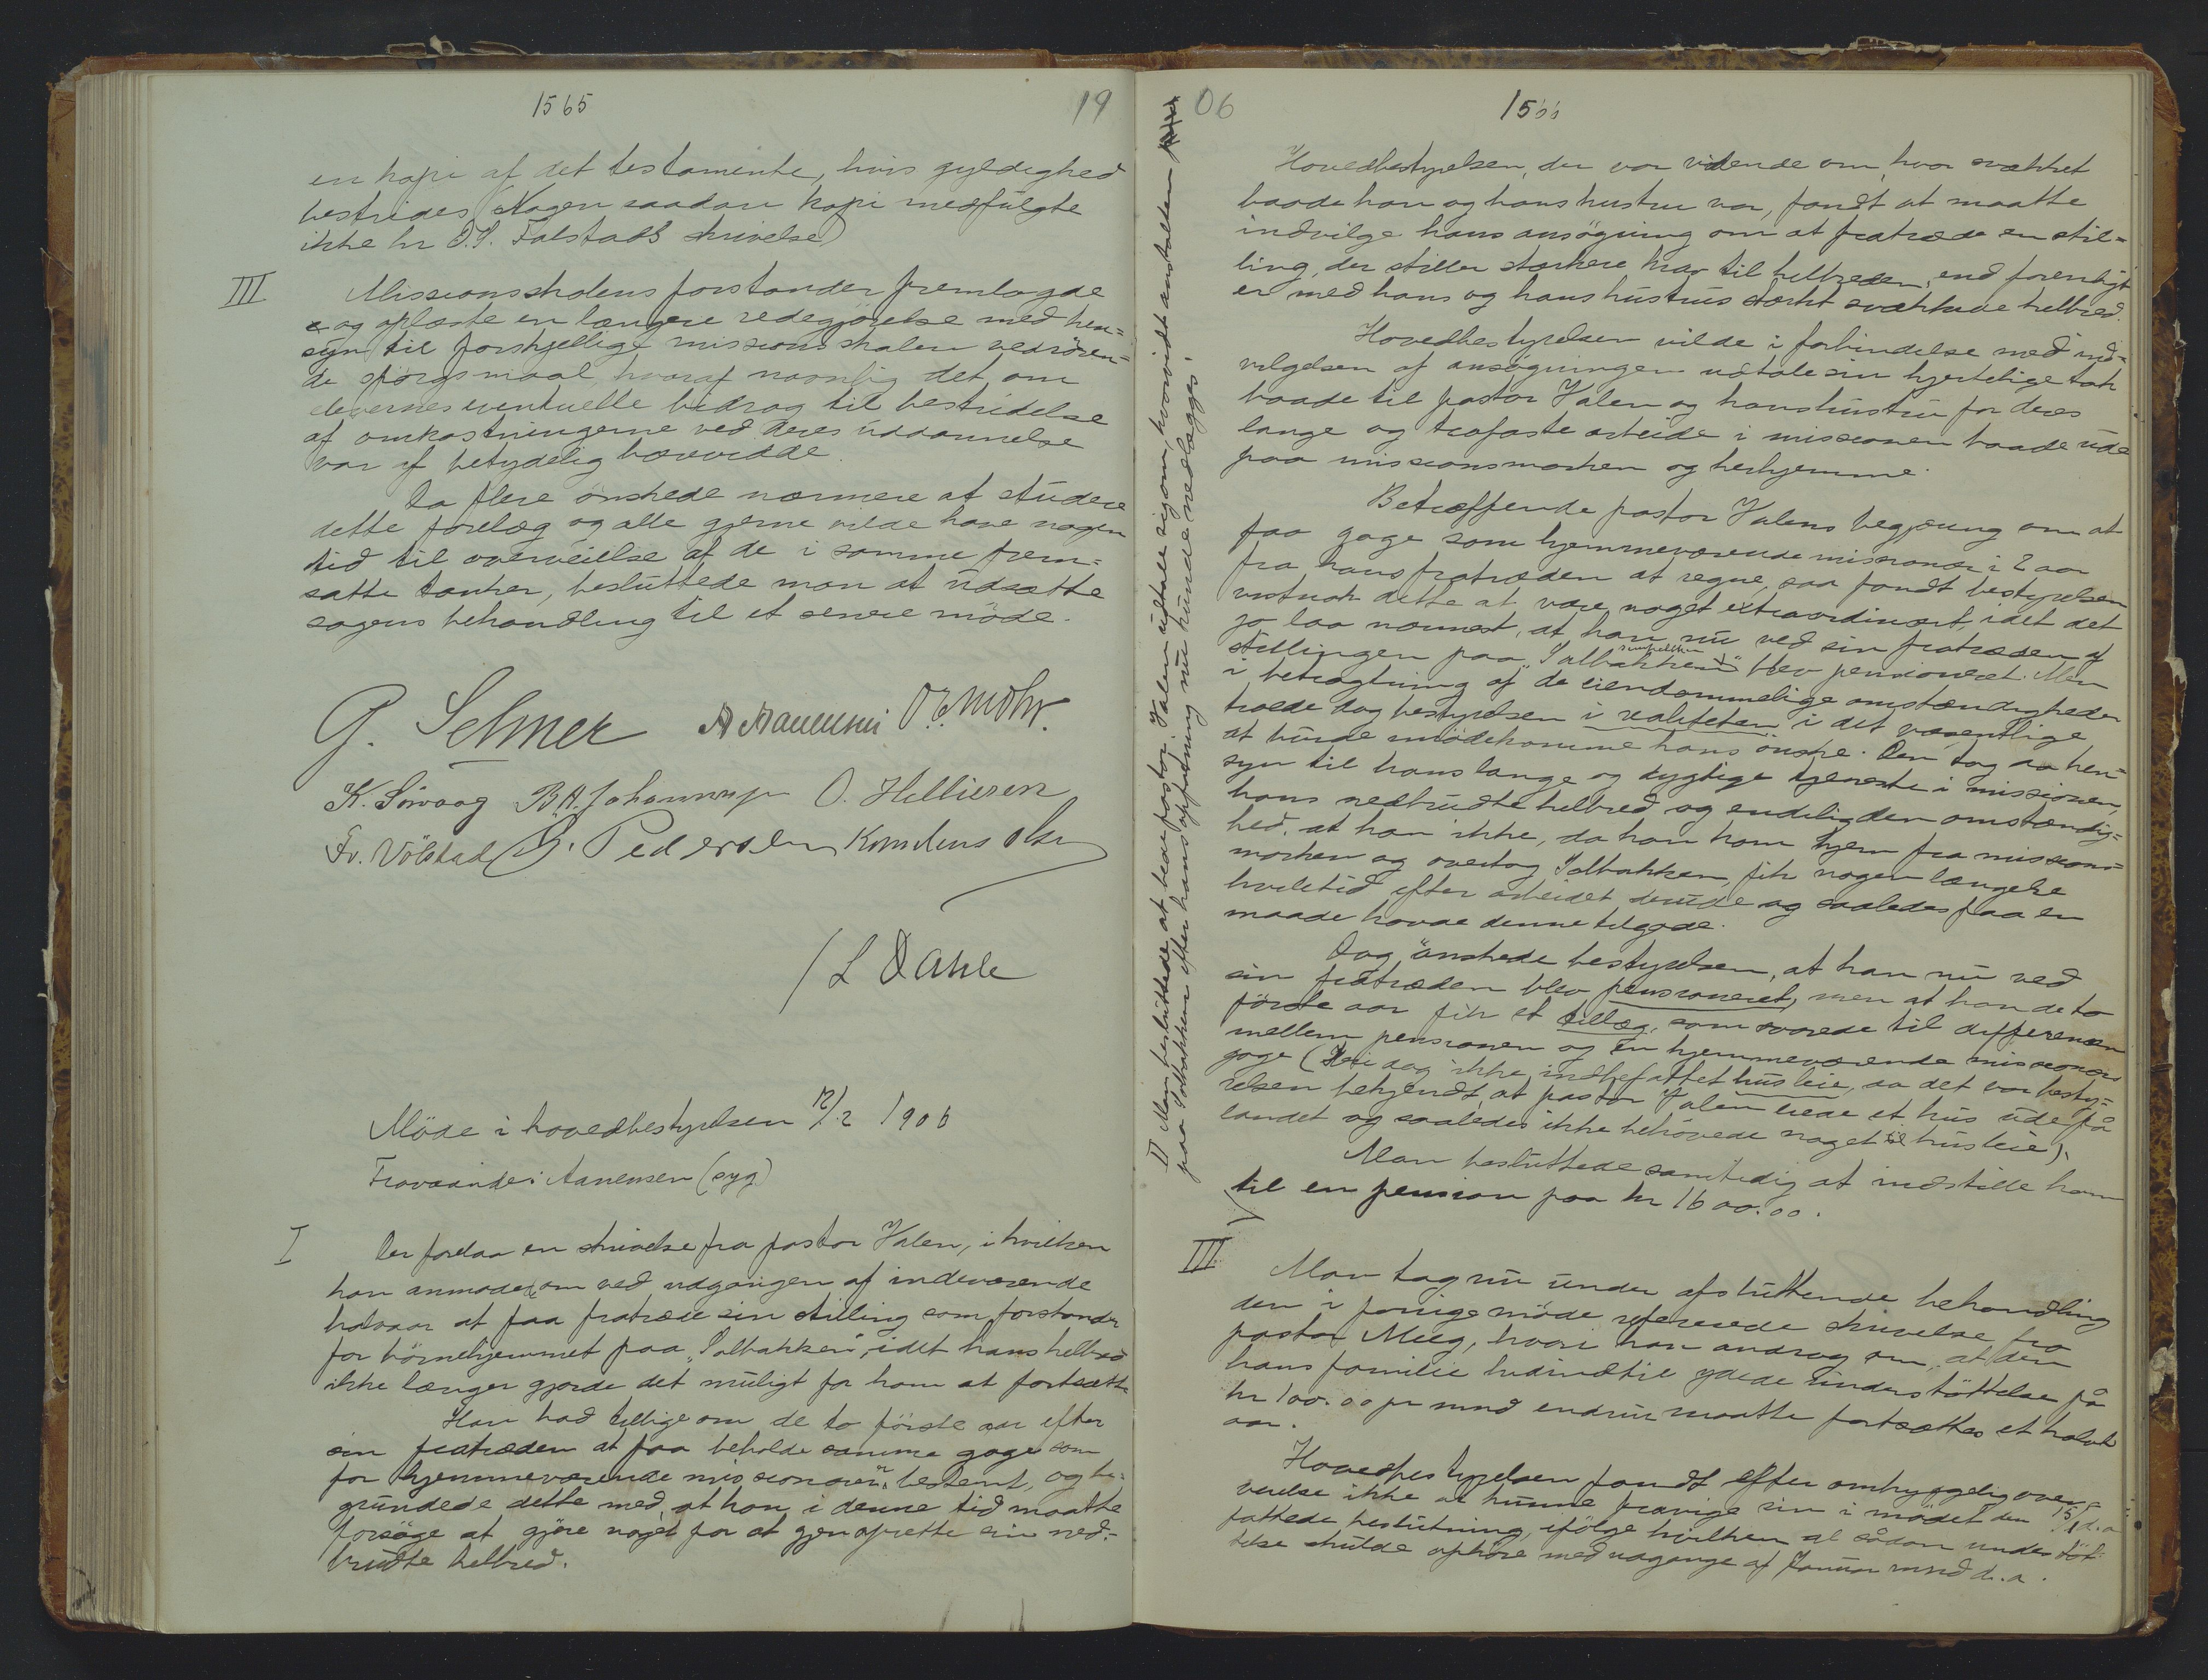 1565
19
en kopi af det testamente, hvis gyldighed
bestrides (Nogen saadan kopi medfulgte
ikke hr O.S. Falstads skrivelse)
III Missionsskolens forstander fremlagde
og oplæste en længere redegjörelse med hen=
syn til forskjellige missionsskolen vedrören=
de spörgsmaal, hvoraf navnlig det om
elevernes eventuelle bidrag til bestridelse
af omkostningerne ved deres uddannelse
var af betydelig rækkevidde.
Da flere önskede nærmere at studere
dette forelæg og alle gjerne vilde have nogen
tid til overveielse af de i samme frem=
satte tanker, besluttede man at udsætte
sagens behandling til et senere möde.
G. Selmer A Aanensen O. Z. Mohr.
K. Sörvaag B.A. Johannesen O. Helliesen
Fr. Völstad G. Pedersen Kornelius Olsen
/ L Dahle
Möde i hovedbestyrelsen 12/2 1906
Fraværende: Aanensen (syg)
I Der forelaa en skrivelse fra pastor Valen, i hvilken
han anmodede om ved udgangen af indeværende
halvaar at faa fratræde sin stilling som forstander
for börnehjemmet paa "Solbakken", idet hans helbred
ikke længer gjorde det muligt for ham at fortsætte
Han bad tillige om de to förste aar efter
sin fratræden at faa beholde samme gage som
for hjemmeværende missionærer bestemt, og be=
grundede dette med, at han i denne tid maatte
forsöge at gjöre noget for at gjenoprette sin ned=
brudte helbred.
06
1566
II Man besluttede at bede pastor Valen udtale sig om, hvorvidt anstalten
paa Solbakken efter hans opfatning nu kunde nedlægges.
Hovedbestyrelsen, der var vidende om, hvor svækket
baade han og hans hustru var, fandt at maatte
indvilge hans ansögning om at fratræde en stil=
ling, der stiller stærkere krav til helbreden, end forenligt
er med hans og hans hustrus stærkt svækkede helbred.
Hovedbestyrelsen vilde i forbindelse med ind=
vilgelsen af ansögningen udtale sin hjertelige tak
baade til pastor Valen og hans hustru for deres
lange og trofaste arbeide i missionen baade ude
paa missionsmarken og herhjemme.
Betræffende pastor Valens begjæring om at
faa gage som hjemmeværende missionær i 2 aar
fra hans fratræden at regne, saa fandt bestyrelsen
vistnok dette at være noget extraordinært, idet det
jo laa nærmest, at han nu ved sin fratræden af
stillingen paa "Solbakken" simpelthen blev pensioneret. Men
i betragtning af de eiendommelige omstændigheder
troede dog bestyrelsen i realiteten i det væsentlige
at burde imödekomme hans önske. Den tog da hen=
syn til hans lange og dygtige tjeneste i missionen,
hans nedbrudte helbred og endelig den omstændig=
hed, at han ikke, da han kom hjem fra missions=
marken og overtog Solbakken, fik nogen længere
hviletid efter arbeidet derude og saaledes paa en
maade havde denne tilgode.
Dog önskede bestyrelsen, at han nu ved
sin fratræden blev pensioneret, men at han de to
förste aar fik et tillæg, som svarede til differencen
mellem pensionen og en hjemmeværende missionærs
gage (Heri dog ikke indbefattet husleie, da det var besty=
relsen bekjendt, at pastor Valen eiede et hus ude på
landet og saaledes ikke behövede noget til husleie).
Man besluttede samtidig at indstille ham
til en pension paa kr 1600.00.
III Man tog nu under afsluttende behandling
den i forrige möde refererede skrivelse fra
pastor Meeg, hvori han androg om, at den
hans familie hidindtil ydede understöttelse på
kr 100.00 pr mnd endnu maatte fortsættes et halvt
aar.
Hovedbestyrelsen fandt efter omhyggelig over=
veielse ikke at kunne fravige sin i mödet den 15/1 d.a
fattede beslutning, ifölge hvilken al sådan understöt=
telse skulde ophöre med udgange af Januar mnd d.a.